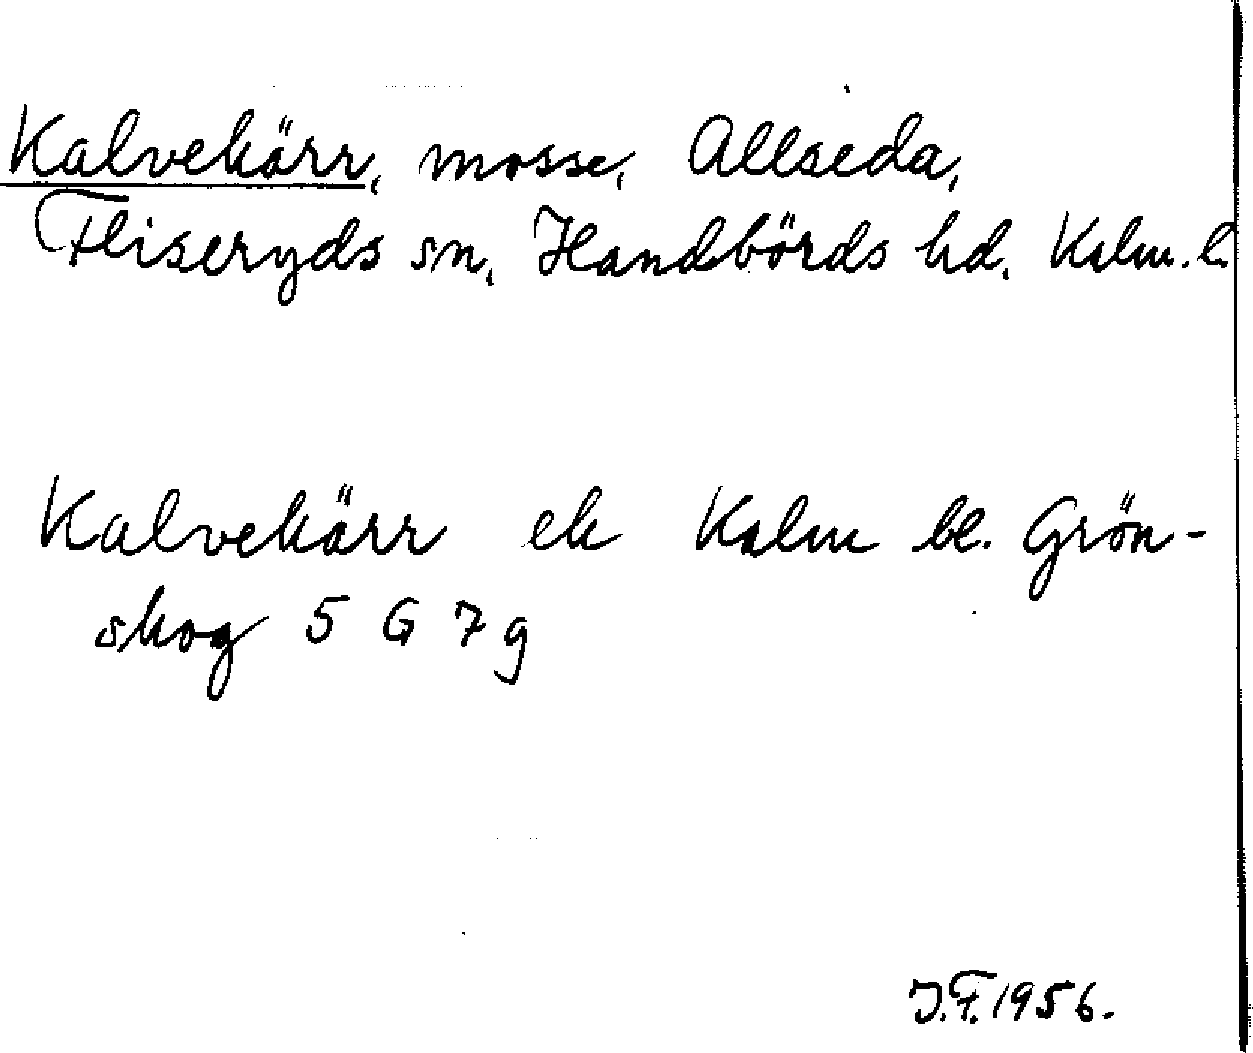 Kalvekärr, mosse, Allseda,
Fliseryds sn, Handbörds hd, Kalm. l.
Kalvekärr ek Kalm bl. Grön-
skog 5 G 7 g
J.F. 1956.